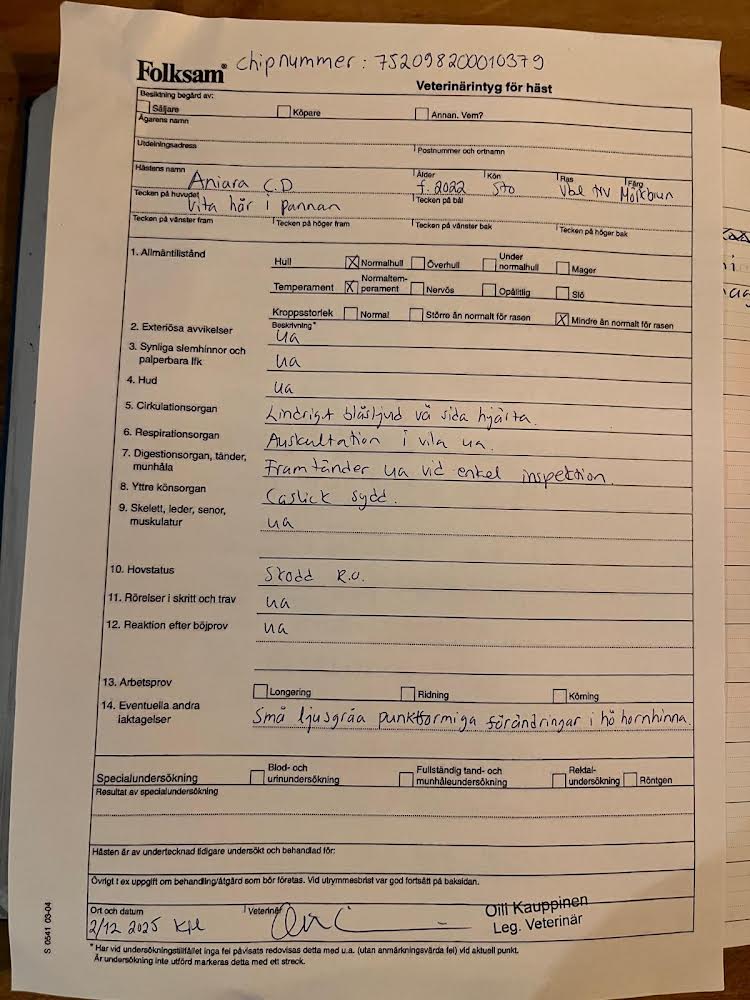 Folksam® chipnummer: 752098200010379
Veterinärintyg för häst
Besiktning begärd av:
Säljare Köpare Annan. Vem?
Ägarens namn
Utdelningsadress Postnummer och ortnamn
Hästens namn Ålder Kön Ras Färg
Aniara C.D f. 2022 Sto Vbl NV Mölkbrun
Tecken på huvudet Tecken på bål
Vita hår i pannan
Tecken på vänster fram Tecken på höger fram Tecken på vänster bak Tecken på höger bak
1. Allmäntillstånd Hull X Normalhull Överhull Under normalhull Mager
Temperament X Normaltem-perament Nervös Opålitlig Slö
Kroppsstorlek Normal Större än normalt för rasen X Mindre än normalt för rasen
2. Exteriösa avvikelser Beskrivning* ua
3. Synliga slemhinnor och
palperbara lfk ua
4. Hud ua
5. Cirkulationsorgan Lindrigt blåsljud vä sida hjärta.
6. Respirationsorgan Auskultation i vila ua.
7. Digestionsorgan, tänder,
munhåla Framtänder ua vid enkel inspektion.
8. Yttre könsorgan Caslick sydd.
9. Skelett, leder, senor,
muskulatur ua
10. Hovstatus Skodd R.O.
11. Rörelser i skritt och trav ua
12. Reaktion efter böjprov ua
13. Arbetsprov Longering Ridning Körning
14. Eventuella andra
iakttagelser Små ljusgråa punktformiga förändringar i hö hornhinna.
Specialundersökning Blod- och urinundersökning Fullständig tand- och munhåleundersökning Rektal-undersökning Röntgen
Resultat av specialundersökning
Hästen är av undertecknad tidigare undersökt och behandlad för:
Övrigt t ex uppgift om behandling/åtgärd som bör företas. Vid utrymmesbrist var god fortsätt på baksidan.
Ort och datum Veterinär
2/12 2025
Oili Kauppinen
Leg. Veterinär
* Har vid undersökningstillfället inga fel påvisats redovisas detta med u.a. (utan anmärkningsvärda fel) vid aktuell punkt.
Är undersökning inte utförd markeras detta med ett streck.
S 0541 03-04